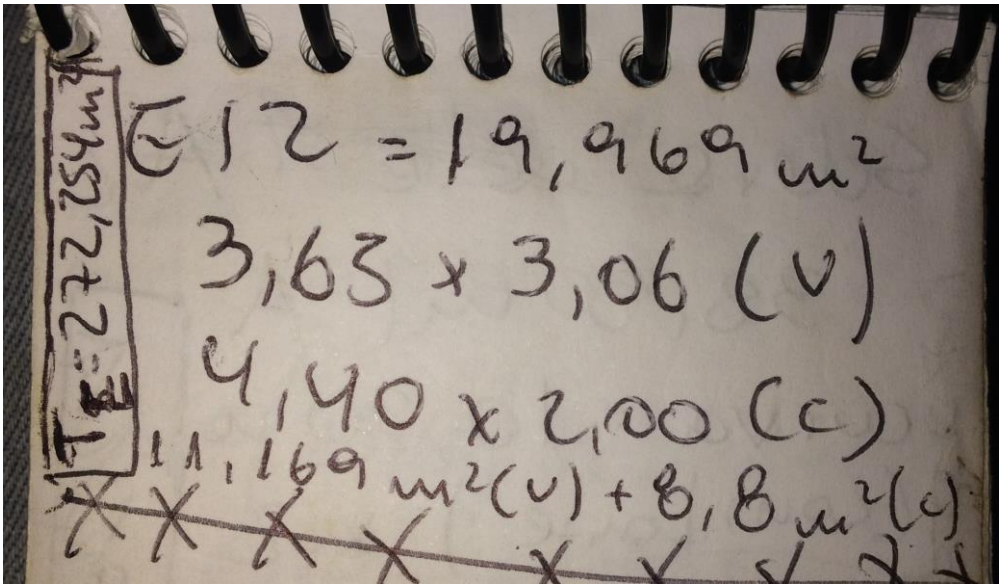 TE=272,254m²
E12 = 19,969 m²
3,65 x 3,06 (v)
4,40 x 2,00 (c)
11,169 m²(v) + 8,8 m²(c)